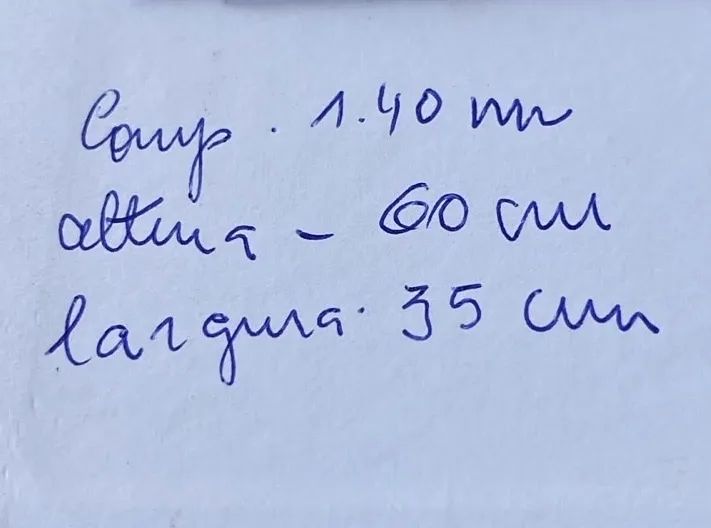 Comp. 1.40 m
altura - 60 cm
largura. 35 cm